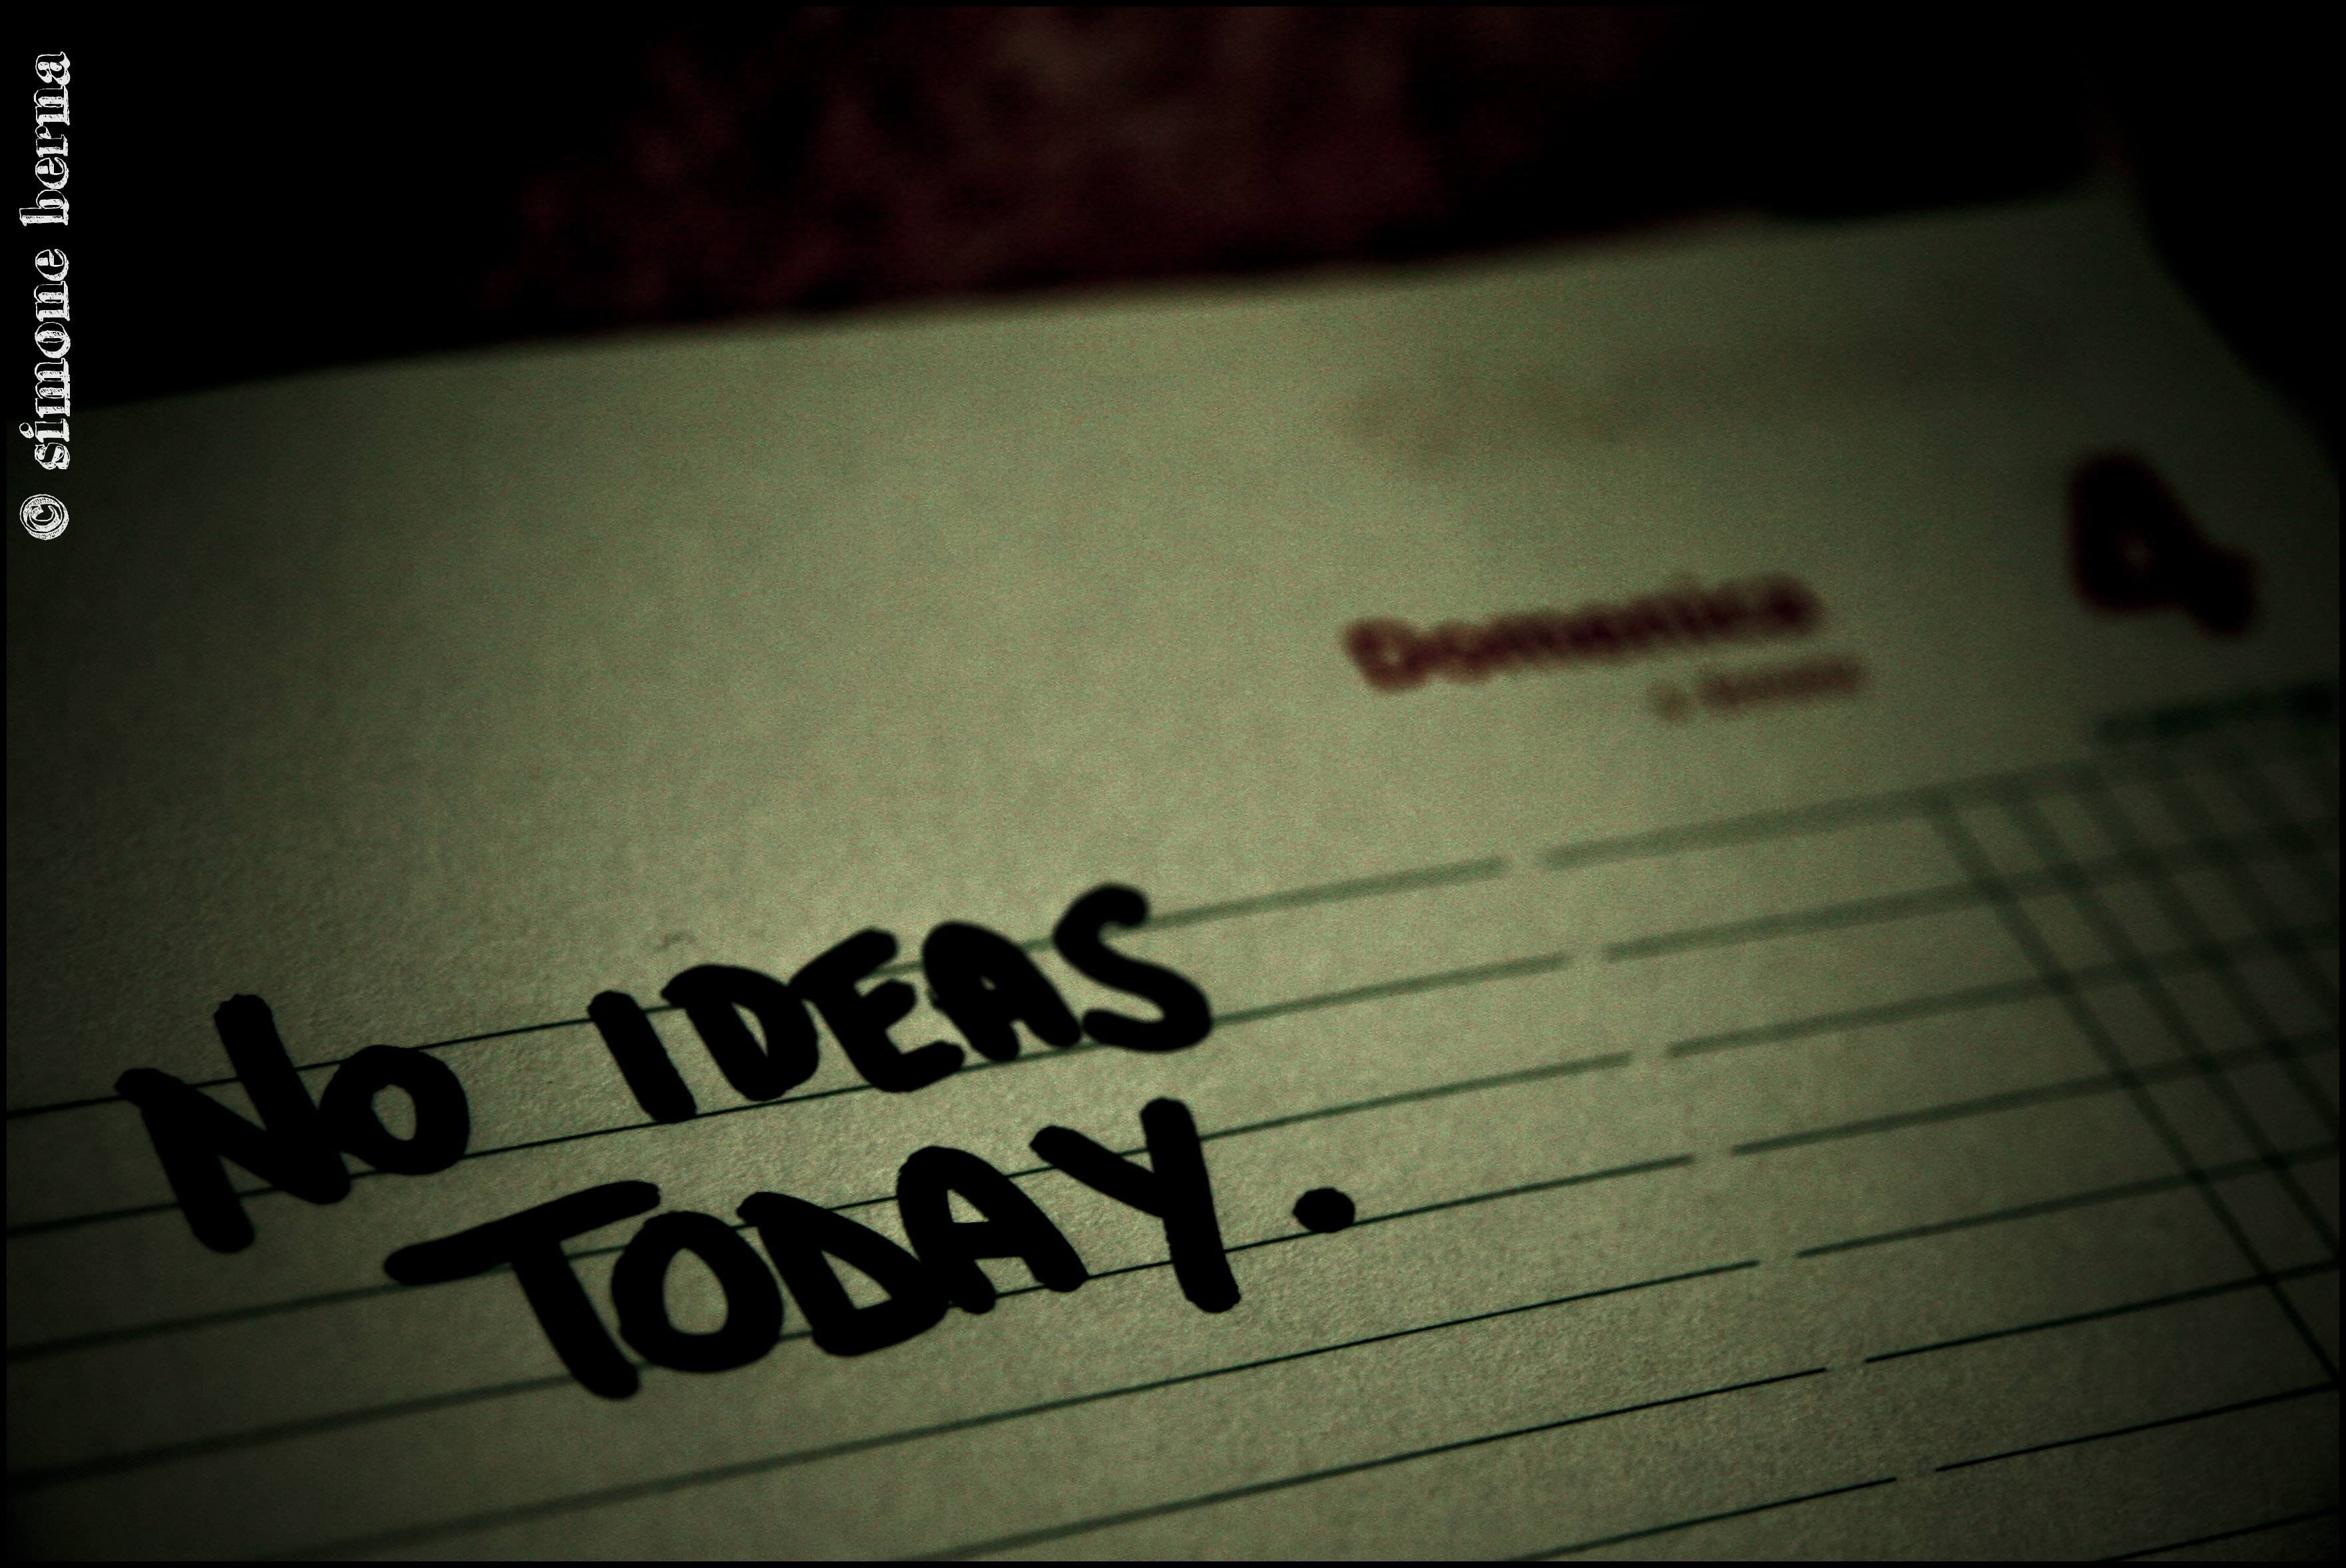 © simone berna
Domenica
4
NO IDEAS
TODAY.